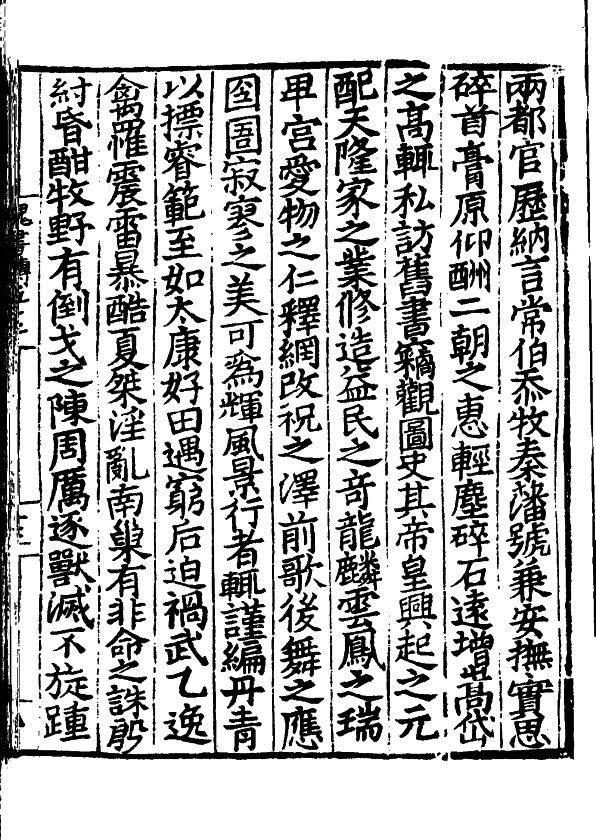 兩都官歷納言常伯忝牧秦藩號兼安撫實思
碎首膏原仰酬二朝之惠輕塵碎石遠增嵩岱
之高輒私訪舊書竊觀圖史其帝皇興起之元
配天隆家之業修造益民之奇龍麟雲鳳之瑞
卑宮愛物之仁釋網改祝之澤前歌後舞之應
囹圄寂寥之美可爲輝風景行者輒謹編丹青
以摽睿範至如太康好田遇窮后迫禍武乙逸
禽罹震雷暴酷夏桀淫亂南巢有非命之誅殷
紂昏酣牧野有倒戈之陳周厲逐獸滅不旋踵